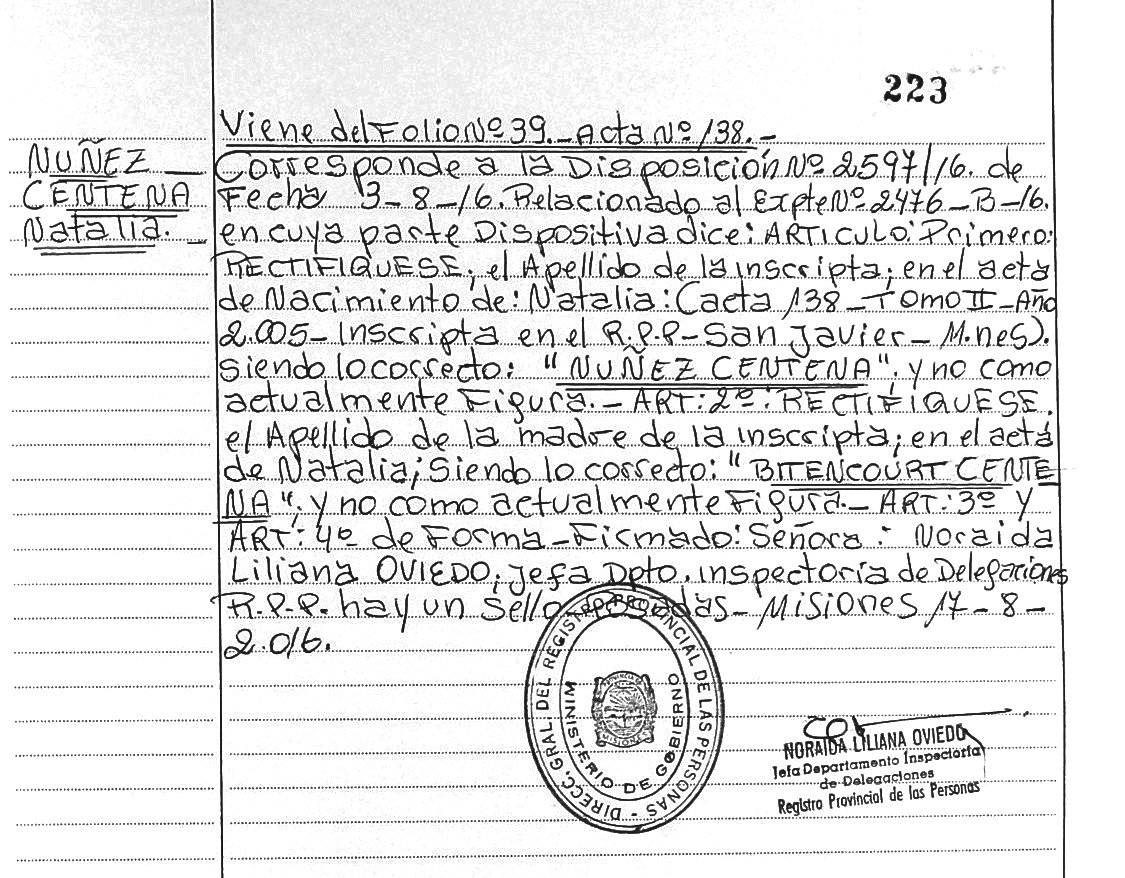 223
NUÑEZ
CENTENA
Natalia.
Viene del Folio Nº 39.- Acta Nº 138.-
Corresponde a la Disposición Nº 2597/16. de
Fecha 3-8-16. Relacionado al Expte Nº 2476-B-16.
en cuya parte Dispositiva dice: ARTICULO: Primero:
RECTIFIQUESE, el Apellido de la inscripta; en el acta
de Nacimiento de: Natalia: Cacta 138-TOMO II-Año
2.005- Inscripta en el R.P.P-San Javier- M.nes).
siendo lo correcto: "NUÑEZ CENTENA"; y no como
actualmente Figura.- ART: 2º: RECTIFIQUESE.
el Apellido de la madre de la inscripta; en el acta
de Natalia; Siendo lo correcto: "BITENCOURT CENTE
NA"; y no como actualmente Figura.- ART: 3º y
ART: 4º de Forma-Firmado: Señora: Noraida
Liliana OVIEDO; Jefa Dpto. inspectoria de Delegaciones
R.P.P. hay un Sello- Posadas- Misiones 17-8-
2.016.
DIRECC. GRAL. DEL REGISTRO PROVINCIAL DE LAS PERSONAS -
MINISTERIO DE GOBIERNO
NORAIDA LILIANA OVIEDO
Jefa Departamento Inspectoria
de Delegaciones
Registro Provincial de las Personas